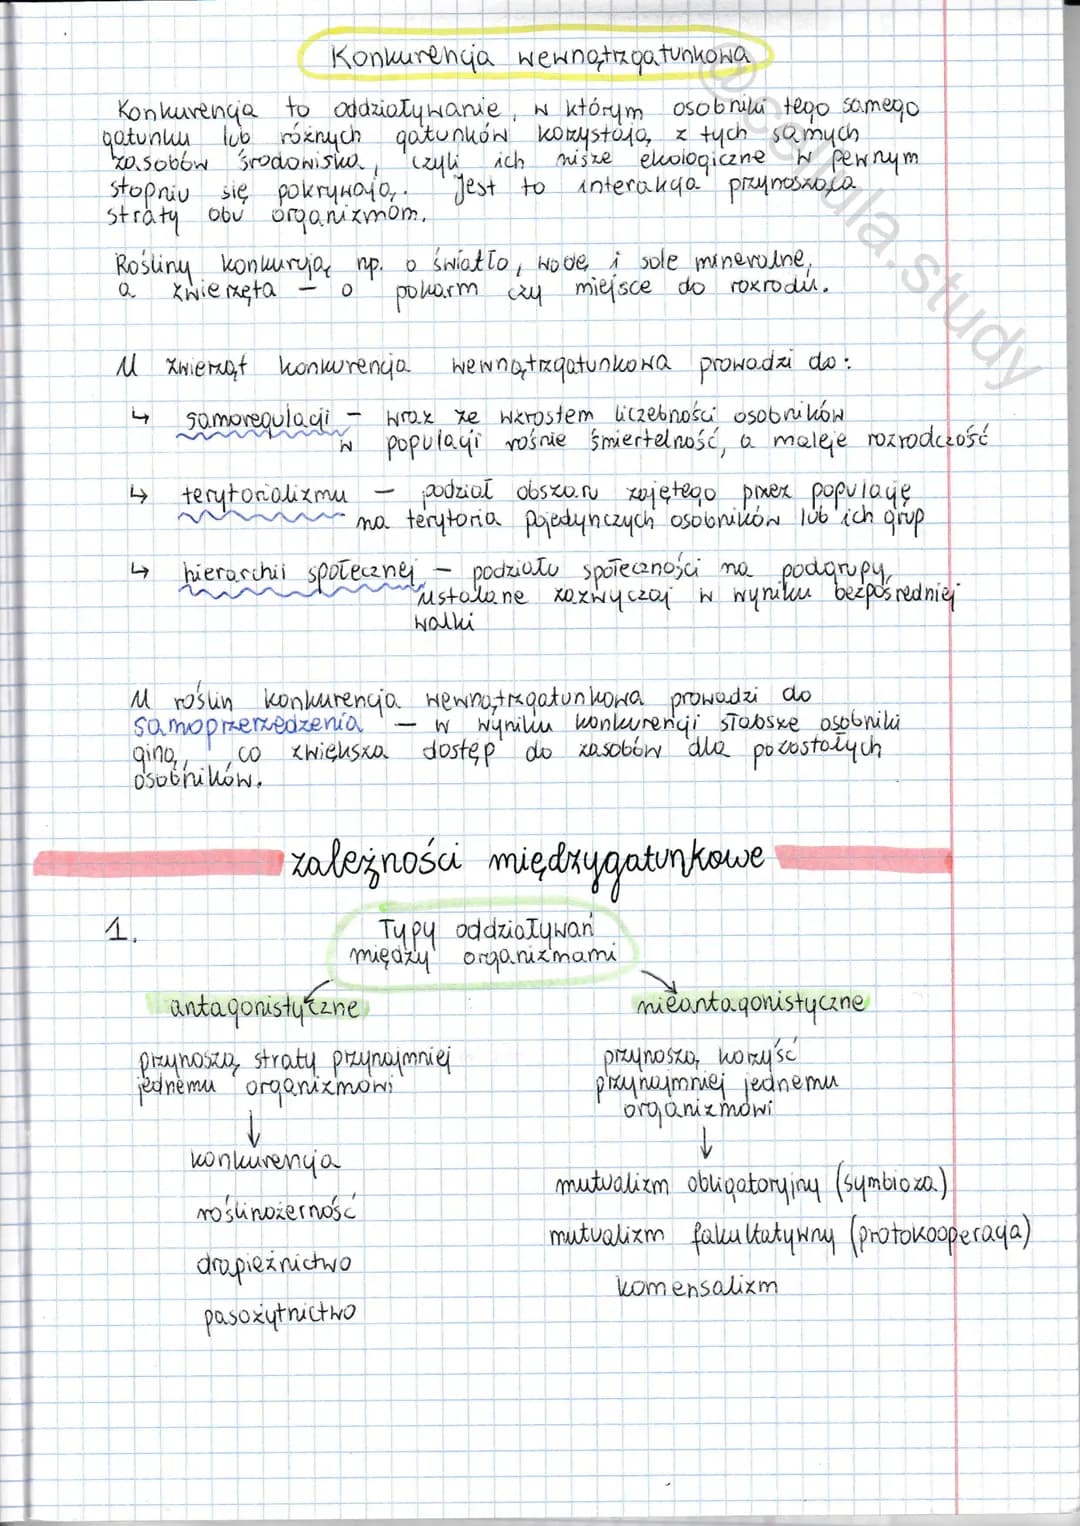 Konkurencja wewnątrzgatunkowa
Konkurencja to oddziaływanie, w którym osobniki tego samego
gatunku lub różnych gatunków korzystają z tych samych
zasobów środowiska, czyli ich nisze ekologiczne w pewnym
stopniu się pokrywają. Jest to interakcja przynosząca
straty obu organizmom.
Rośliny konkurują np. o światło, wodę i sole mineralne,
a zwierzęta – o pokarm czy miejsce do rozrodu.
U zwierząt konkurencja wewnątrzgatunkowa prowadzi do:
↳ samoregulacji – wraz ze wzrostem liczebności osobników
w populacji rośnie śmiertelność, a maleje rozrodczość
↳ terytorializmu – podział obszaru zajętego przez populację
na terytoria pojedynczych osobników lub ich grup
↳ hierarchii społecznej – podziału społeczności na podgrupy,
ustalane zazwyczaj w wyniku bezpośredniej
walki
U roślin konkurencja wewnątrzgatunkowa prowadzi do
samoprzerzedzenia – w wyniku konkurencji słabsze osobniki
giną, co zwiększa dostęp do zasobów dla pozostałych
osobników.
zależności międzygatunkowe
1. Typy oddziaływań
między organizmami
antagonistyczne nieantagonistyczne
przynoszą straty przynajmniej
jednemu organizmowi
przynoszą korzyść
przynajmniej jednemu
organizmowi
↓
konkurencja
roślinożerność
drapieżnictwo
pasożytnictwo
↓
mutualizm obligatoryjny (symbioza)
mutualizm fakultatywny (protokooperacja)
komensalizm